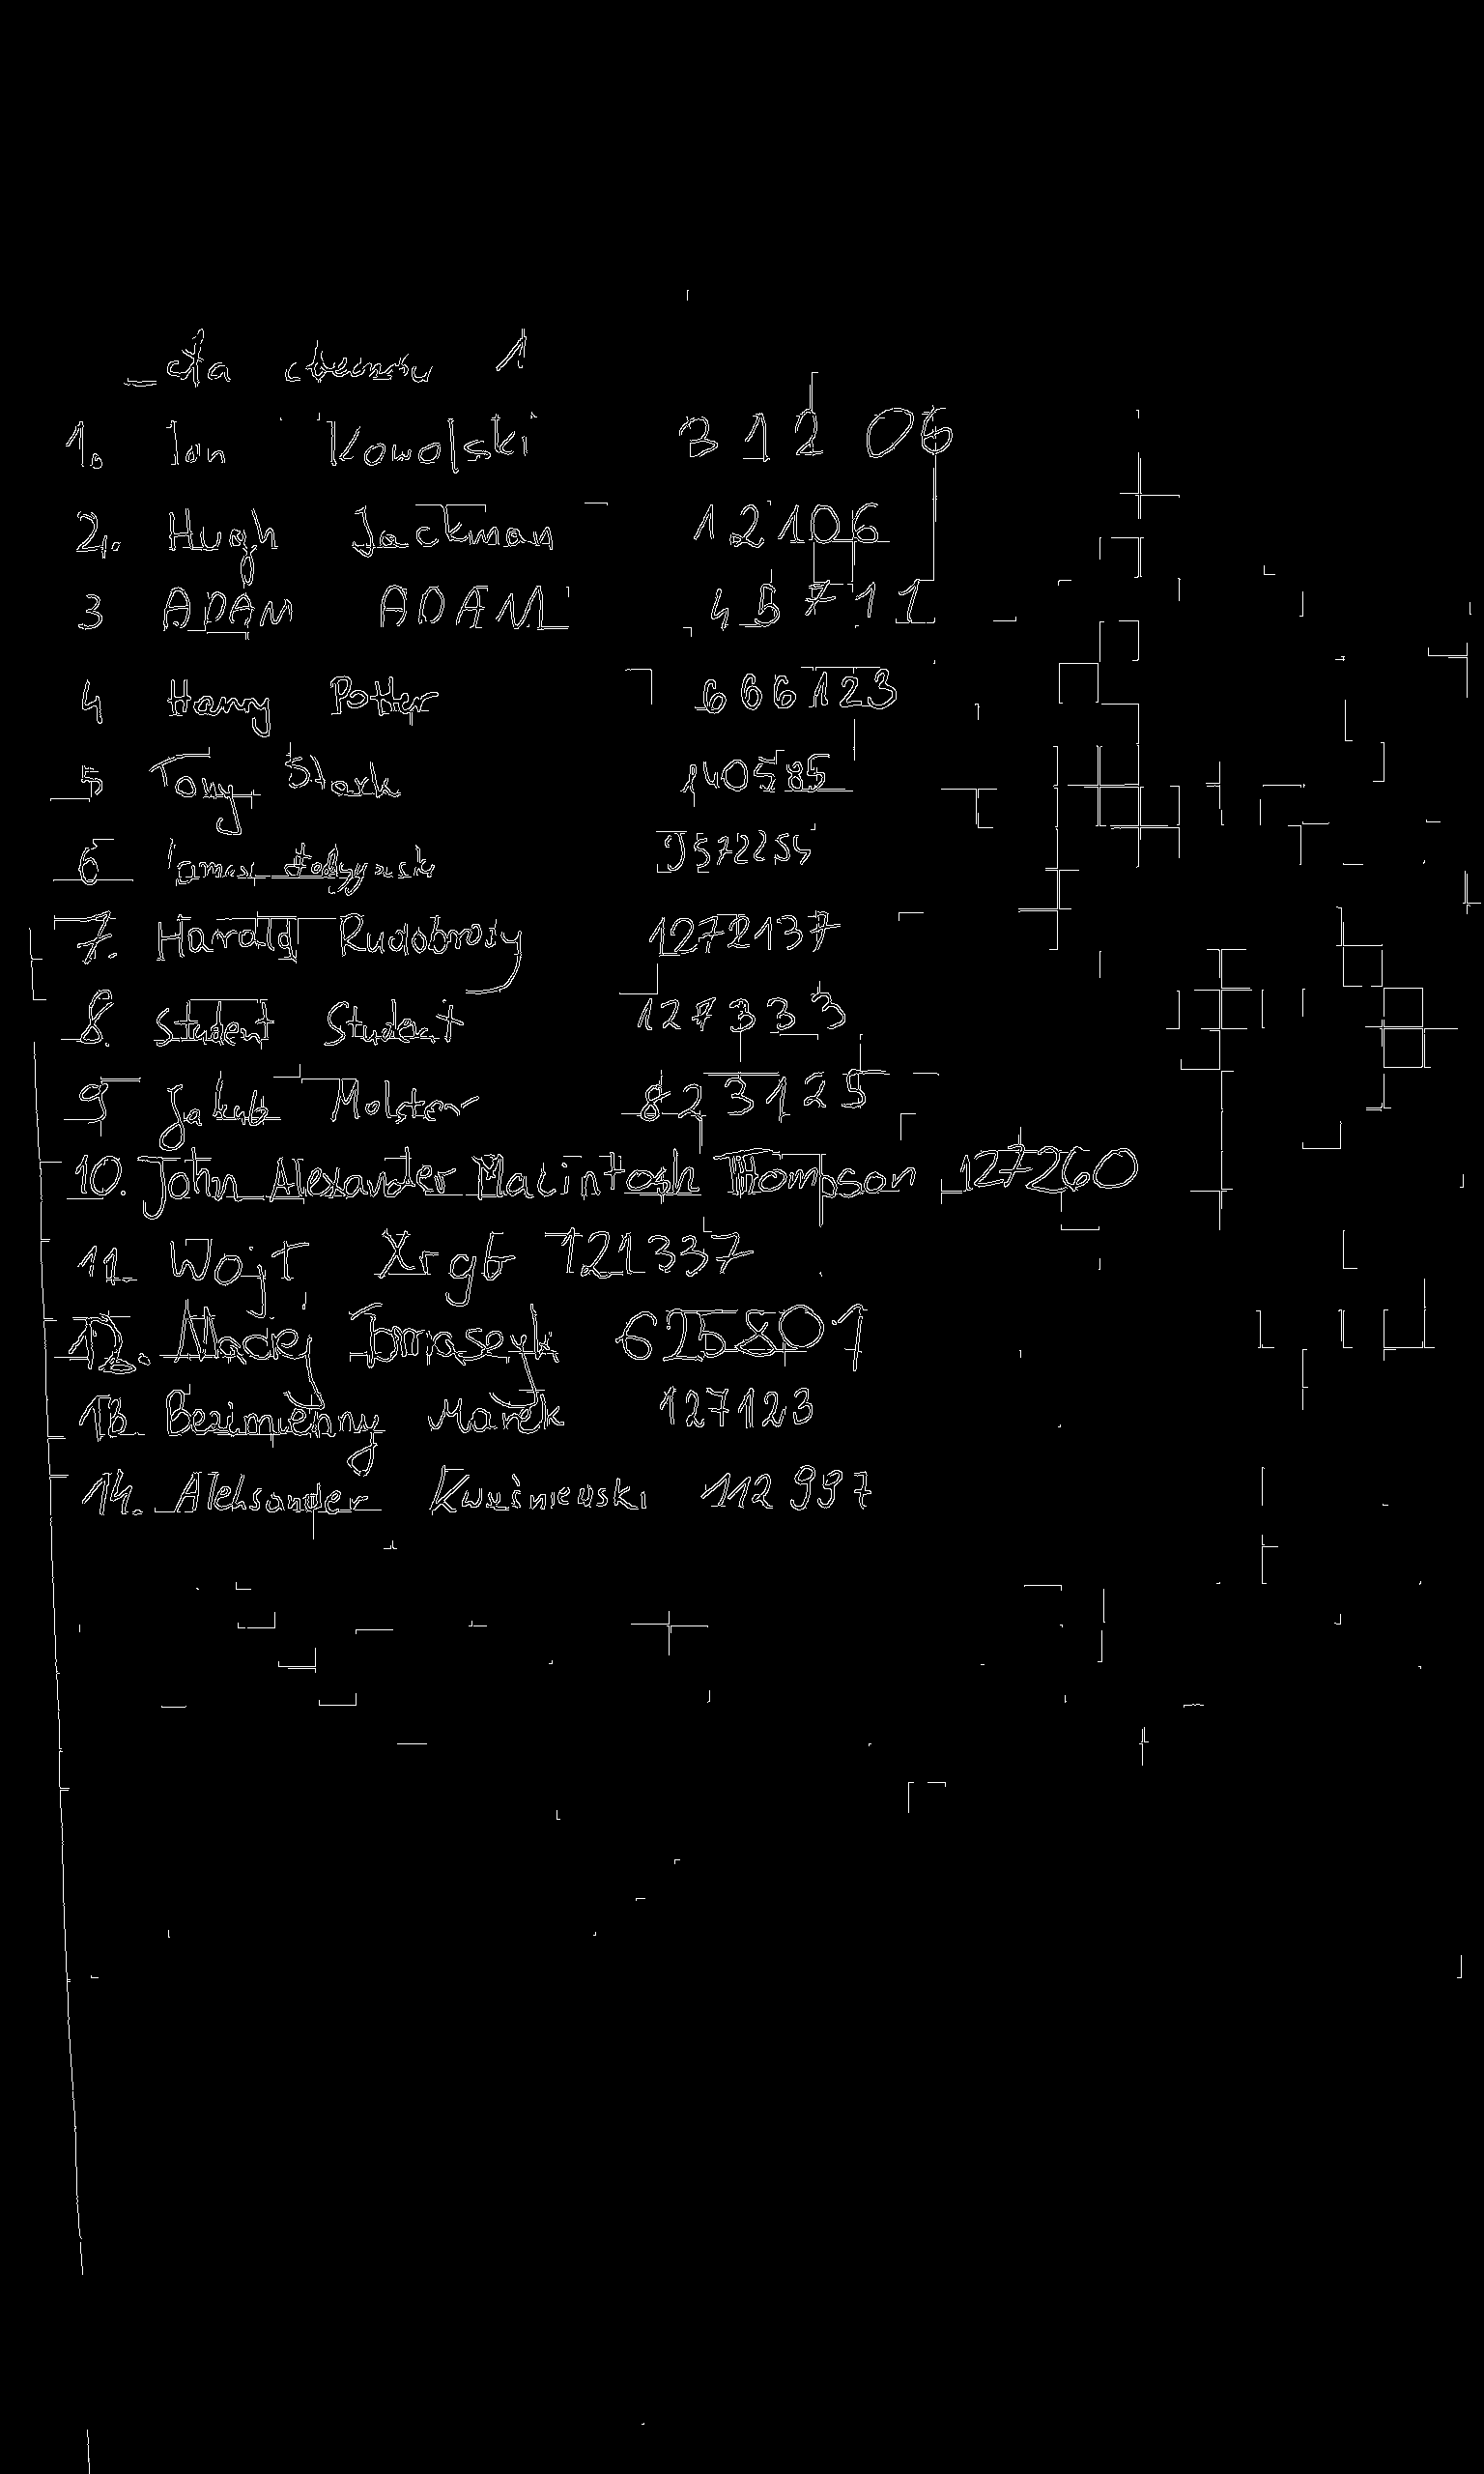 1
1. Jan Kowalski 31206
2. Hugh Jackman 12106
3 ADAM ADAM 45711
4 Harry Potter 666123
5 Tony Stark 140585
6
7. Harald Rudobrody 1272137
8. Student Student 127333
9 Jakub Molster 823125
10. John Alexander Macintosh Thompson 127260
11. Wojt Xrgb 121337
12. Maciej Tomaszyk 625801
13. Bezimienny Marek 127123
14. Aleksander Kwaśniewski 112997